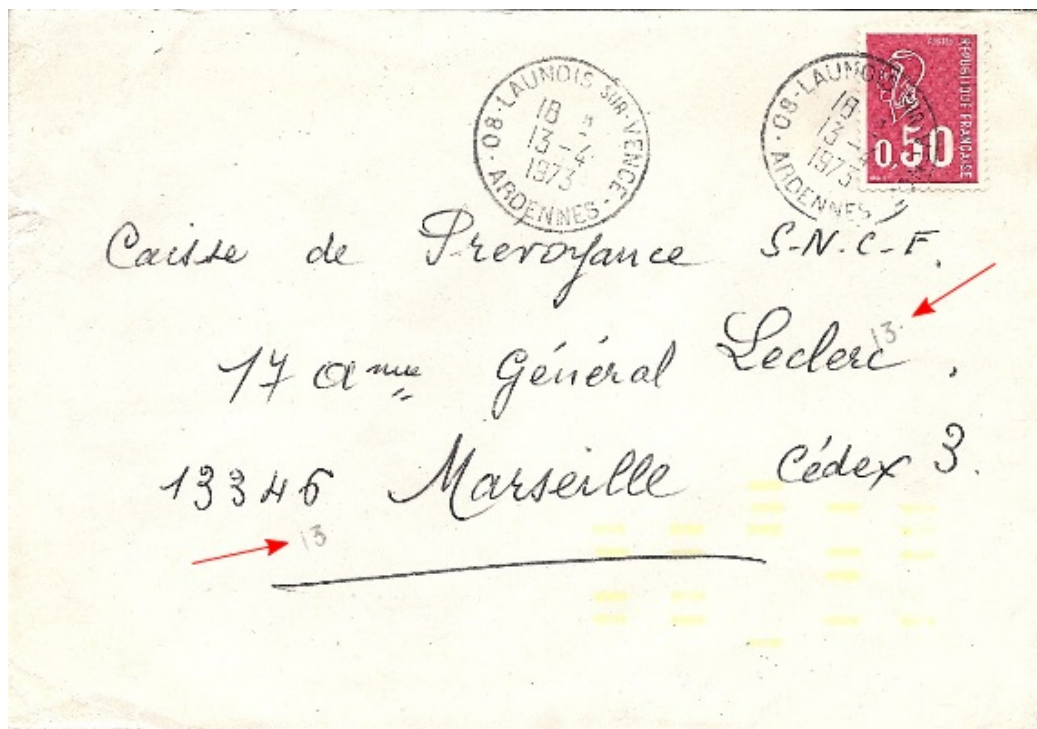 08-LAUNOIS SUR-VENCE-
18
13-4
1973
ARDENNES
08-LAUNOIS
18
13-4
1973
ARDENNES
REPUBLIQUE FRANÇAISE
0,50
Caisse de Prevoyance S-N-C-F.
17 avnue Général Leclerc.
13
13346 Marseille Cédex 3.
13